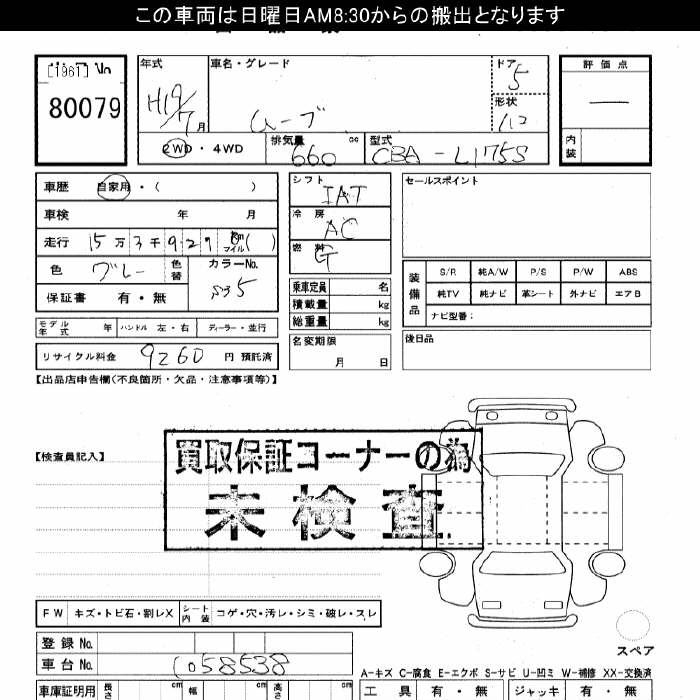 この車両は日曜日AM8:30からの搬出となります
[1961] No
80079
年式
H19/7月
車名・グレード
ムーブ
ドア
5
形状
評価点
—
内装
2WD・4WD
排気量 660 cc
型式 CBA-L175S
車歴 自家用・( )
車検 年 月
走行 15万3千9270 Km マイル ( )
色 グレー 色替
カラーNo. S35
保証書 有・無
シフト IAT
冷房 AC
燃料 G
乗車定員 名
積載量 kg
総重量 kg
名変期限
月 日
セールスポイント
装備品
S/R 純A/W P/S P/W ABS
純TV 純ナビ 革シート 外ナビ エアB
ナビ型番:
後日品
モデル年式 年 ハンドル 左・右 ディーラー・並行
リサイクル料金 9260 円 預託済
【出品店申告欄(不良箇所・欠品・注意事項等)】
【検査員記入】
買取保証コーナーの為
未検査
FW キズ・トビ石・割レX シート内装 コゲ・穴・汚レ・シミ・破レ・スレ
登録No.
車台No. 0058538
スペア
A-キズ C-腐食 E-エクボ S-サビ U-凹ミ W-補修 XX-交換済
車庫証明用 長さ cm 幅 cm 高さ cm
工具 有・無 ジャッキ 有・無